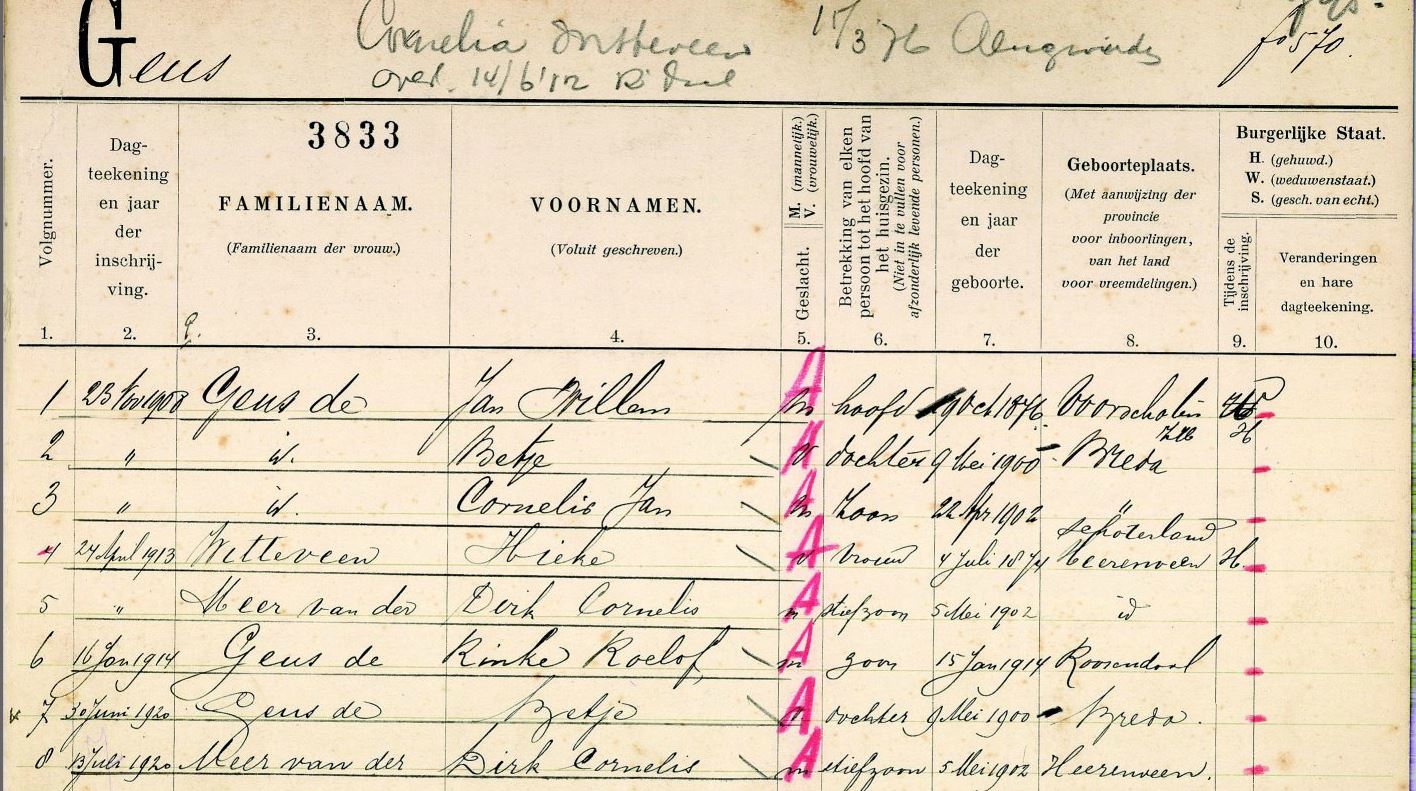 Geus
Cornelia
17/3 76
overl. 14/6 '12 R'daal
fo 570.
Volgnummer.
1.
Dag-
teekening
en jaar
der
inschrij-
ving.
2.
3833
FAMILIENAAM.
(Familienaam der vrouw.)
3.
VOORNAMEN.
(Voluit geschreven.)
4.
M. (mannelijk.)
V. (vrouwelijk.)
Geslacht.
5.
Betrekking van elken
persoon tot het hoofd van
het huisgezin.
(Niet in te vullen voor
afzonderlijk levende personen.)
6.
Dag-
teekening
en jaar
der
geboorte.
7.
Geboorteplaats.
(Met aanwijzing der
provincie
voor inboorlingen,
van het land
voor vreemdelingen.)
8.
Burgerlijke Staat.
H. (gehuwd.)
W. (weduwenstaat.)
S. (gesch. van echt.)
Tijdens de
inschrijving.
9.
Veranderingen
en hare
dagteekening.
10.
1 23 Nov 1908 Geus de Jan Willem A m hoofd 19 Oct 1876 Voorschoten W
ZH H
2 " id. Betje A v dochter 9 Mei 1900 Breda
3 " id. Cornelis Jan A m Zoon 22 Apr 1902 "
Schoterland
4 24 April 1913 Witteveen Hieke A v vrouw 4 Juli 1874 Heerenveen H.
5 " Meer van der Dirk Cornelis A m stiefzoon 5 Mei 1902 id
6 16 Jan 1914 Geus de Rinke Roelof A m zoon 15 Jan 1914 Roosendaal
7 30 Juni 1920 Geus de Betje A v dochter 9 Mei 1900 Breda.
8 13 Juli 1920 Meer van der Dirk Cornelis A m stiefzoon 5 Mei 1902 Heerenveen.